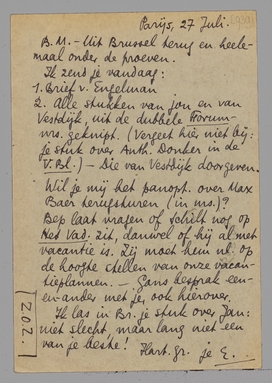 Parijs, 27 Juli.
B.M. - Uit Brussel terug en heele-
maal onder de proeven.
Ik zend je vandaag:
1. Brief v. Engelman
2. Alle stukken van jou en van
Vestdijk, uit de dubbele Forum-
nrs. geknipt. (Vergeet hier niet bij:
je stuk over Anth. Donker in de
V.Bl.) - Die van Vestdijk doorgeven.
Wil je mij het panopt. over Max
Baer terugsturen (in ms.)?
Bep laat vragen of Schilt nog op
Het Vad. zit, danwel of hij al met
vacantie is. Zij moet hem nl. op
de hoogte stellen van onze vacan-
tieplannen. - Gans besprak een-
en-ander met je, ook hierover.
Ik las in Br. je stuk over Jan:
niet slecht, maar lang niet een
van je beste!
Hart. gr. je E.